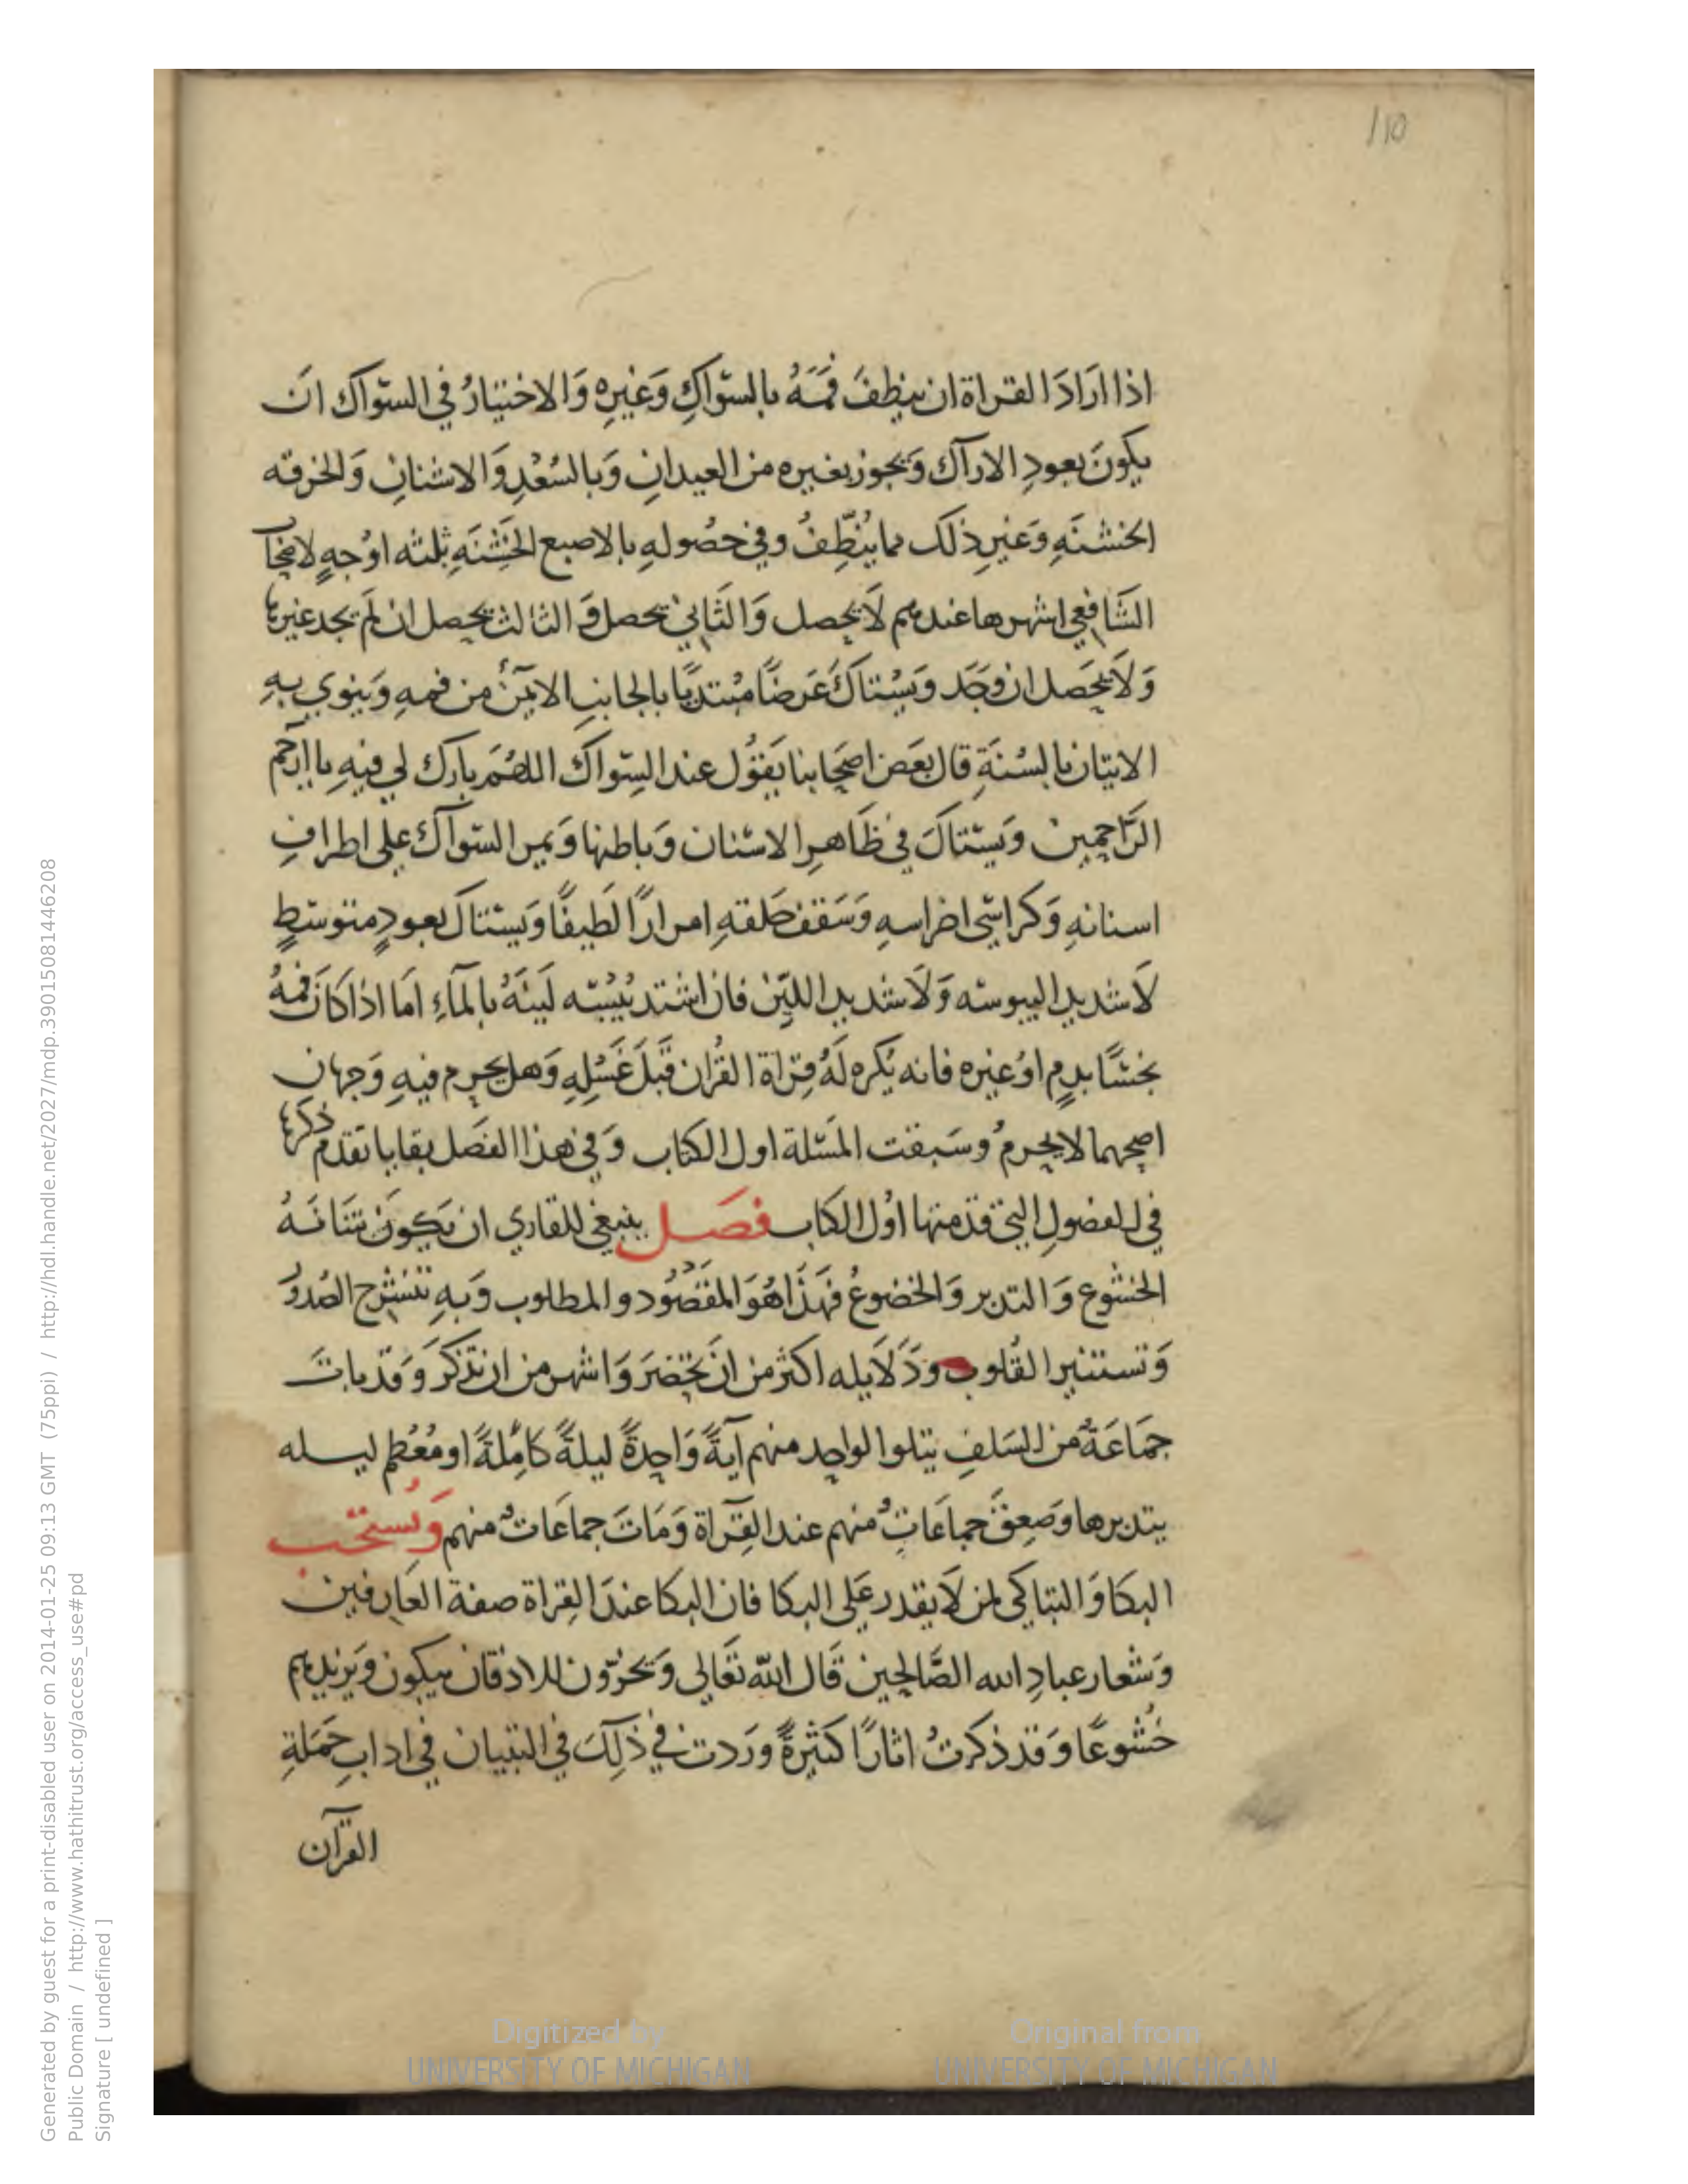 110
اذا ارَادَ القراة ان ينظفَ فمَهُ بالسّواكِ وَغيرِه وَالاختيَارُ في السّواك انَ
يكونَ بعودِ الاراك وَيجوز بغيره من العيدانِ وَبالسُعْدِ وَالاشنانِ وَالخرقه
الخشنَهِ وَغيرِ ذلك مما ينُظِّفُ وفي حصُولهِ بالاصبع الخَشِنَهِ ثلثه اوْجهٍ لاصحاب
الشَافِعي اشهرها عندهم لَا يحصل وَالثَاني يحصل وَالثالث يحصل ان لَم يجد غيرها
وَلَا يحصَل ان وجَد وَيسْتاكُ عَرضًا مبْتديًا بالجانبِ الايمن من فمهِ وَينوي بهِ
الاتيَان بالسُنَةِ قال بعَض اصحَابنا يَقوُل عند السِّواك اللهُمَ بارك لي فيهِ يا ارحَم
الرَّاحمِين وَيسْتاكَ في ظَاهرِ الاسنان وَباطنها وَيمر السّواك على اطرافِ
اسنانهِ وَكراسّي اضراسهِ وَسَقف حَلقهِ امرارًا لَطيفًا وَيسْتاك بعودٍ متوسّطٍ
لَا شديد اليبوسَه وَلَا شديد اللّيِن فان اشتد يُبْسَه لَينَهُ بالمآءِ امَا اذا كانَ فمهُ
نجسًا بدمٍ اوْ غيره فانه يُكره لَهُ قِراة القُران قَبلَ غَسْلِهِ وَهل يحرم فيهِ وَجهانِ
اصحهما لا يحرمُ وسَبقت المَسْلة اول الكتاب وَفي هذا الفصَل بقايا تقدم ذكرها
في الفصُولِ التي قدمتها اوُل الكتاب فصَل ينبغي للقاري ان يَكونَ شَانَهُ
الخشُوع وَالتدبر وَالخضوعُ فهَذَا هُوَ المقصُود والمطلوب وَبهِ تنشرح الصُدوُر
وَتستنير القُلوب ودَلَايله اكثر من انَ تحصَرَ وَاشهر من ان تذكَر وَقد باتَ
جمَاعَة من السَلفِ يتلوا الواحد منهم آيةً وَاحِدةً ليلةً كامِلةً او مُعْظم ليله
يتدبرها وَصعِقَ جماعَاتٌ منهم عند القِرآة وَمَاتَ جماعَاتٌ منهم وَيُستحَب
البكا وَالتباكي لمن لَا يقدر عَلى البكا فان البكا عندَ القِراة صفة العَارِفين
وَشعار عبادِ الله الصَّالحين قَال الله تعَالى وَيخرّون للاذقان يبكون وَيزيدهم
خُشوعًا وَقد ذكرتُ اثارًا كثيرةً ورَدت في ذلِكَ في التبيان في ادابِ حَمَلةِ
القرآن
Generated by guest for a print-disabled user on 2014-01-25 09:13 GMT (75ppi) / http://hdl.handle.net/2027/mdp.39015081446208
Public Domain / http://www.hathitrust.org/access_use#pd
Signature [ undefined ]
Digitized by
UNIVERSITY OF MICHIGAN
Original from
UNIVERSITY OF MICHIGAN